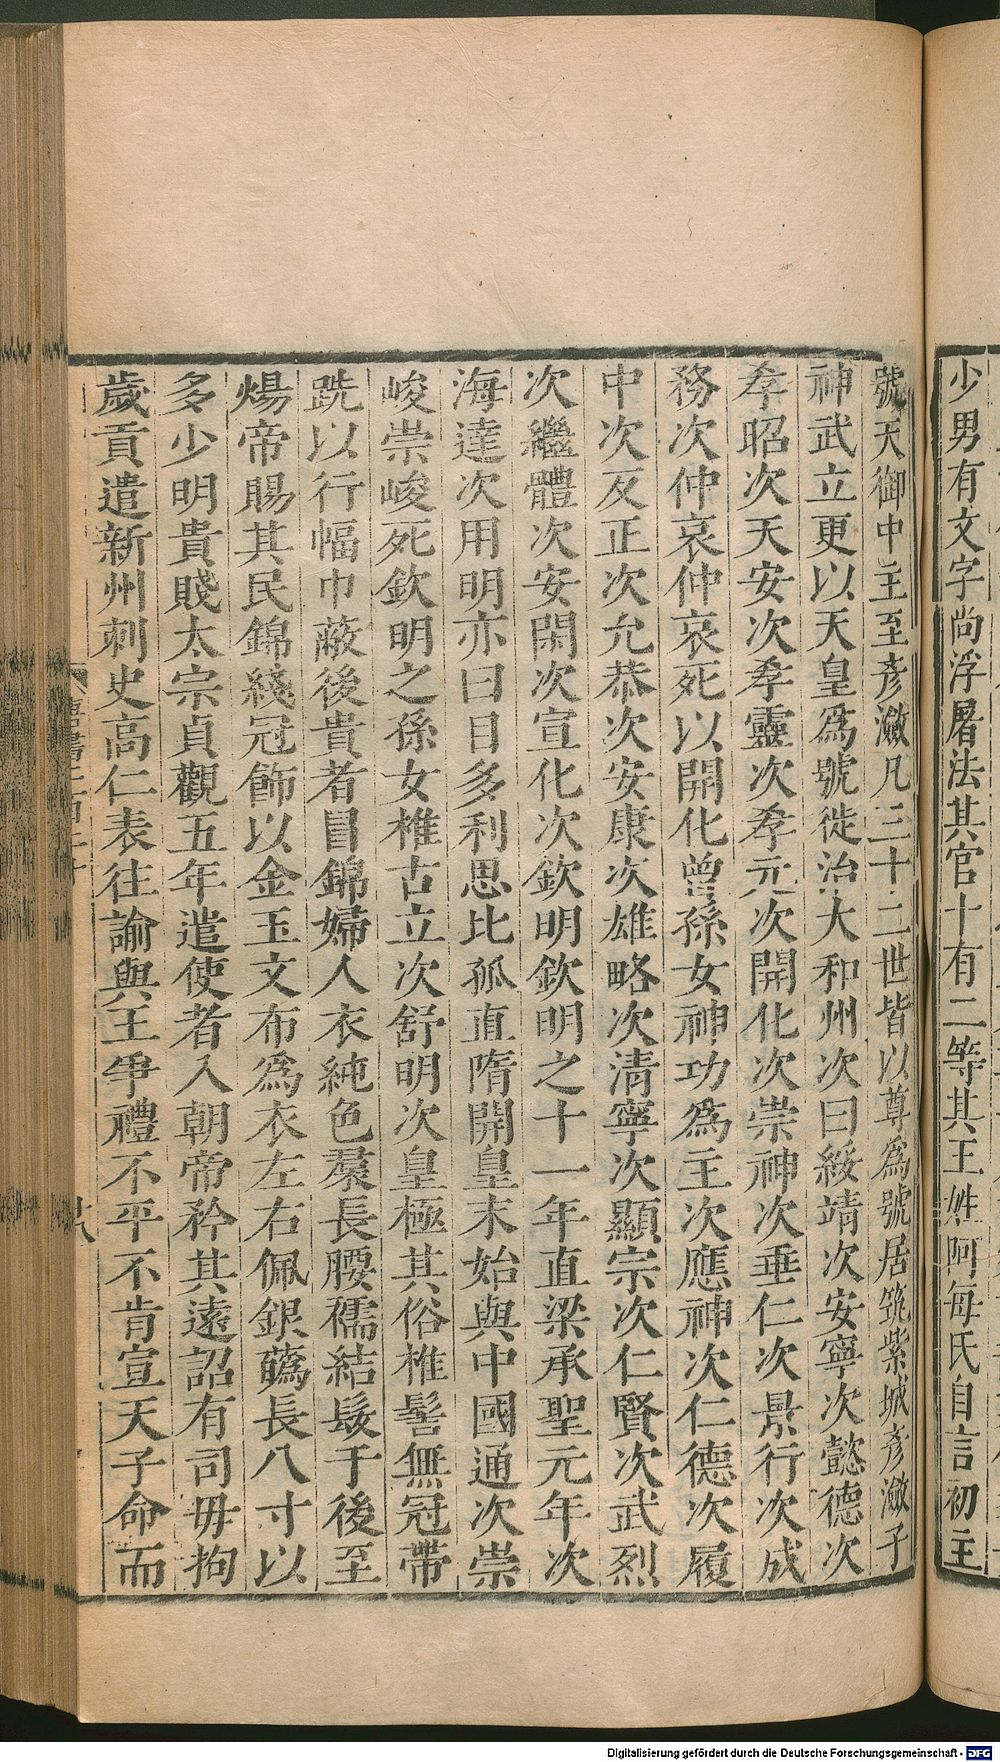 少男有文字尚浮屠法其官十有二等其王姓阿每氏自言初主
號天御中主至彥瀲凡三十二世皆以尊爲號居筑紫城彥瀲子
神武立更以天皇爲號徙治大和州次曰綏靖次安寧次懿德次
孝昭次天安次孝靈次孝元次開化次崇神次垂仁次景行次成
務次仲哀仲哀死以開化曾孫女神功爲主次應神次仁德次履
中次反正次允恭次安康次雄略次清寧次顯宗次仁賢次武烈
次繼體次安閑次宣化次欽明欽明之十一年直梁承聖元年次
海達次用明亦曰目多利思比孤直隋開皇末始與中國通次崇
峻崇峻死欽明之孫女椎古立次舒明次皇極其俗椎髻無冠帶
跣以行幅巾蔽後貴者冒錦婦人衣純色羣長腰襦結髮于後至
煬帝賜其民錦綫冠飾以金玉文布爲衣左右佩銀蘤長八寸以
多少明貴賤太宗貞觀五年遣使者入朝帝矜其遠詔有司毋拘
歲貢遣新州刺史高仁表往諭與王爭禮不平不肯宣天子命而
Digitalisierung gefördert durch die Deutsche Forschungsgemeinschaft - DFG